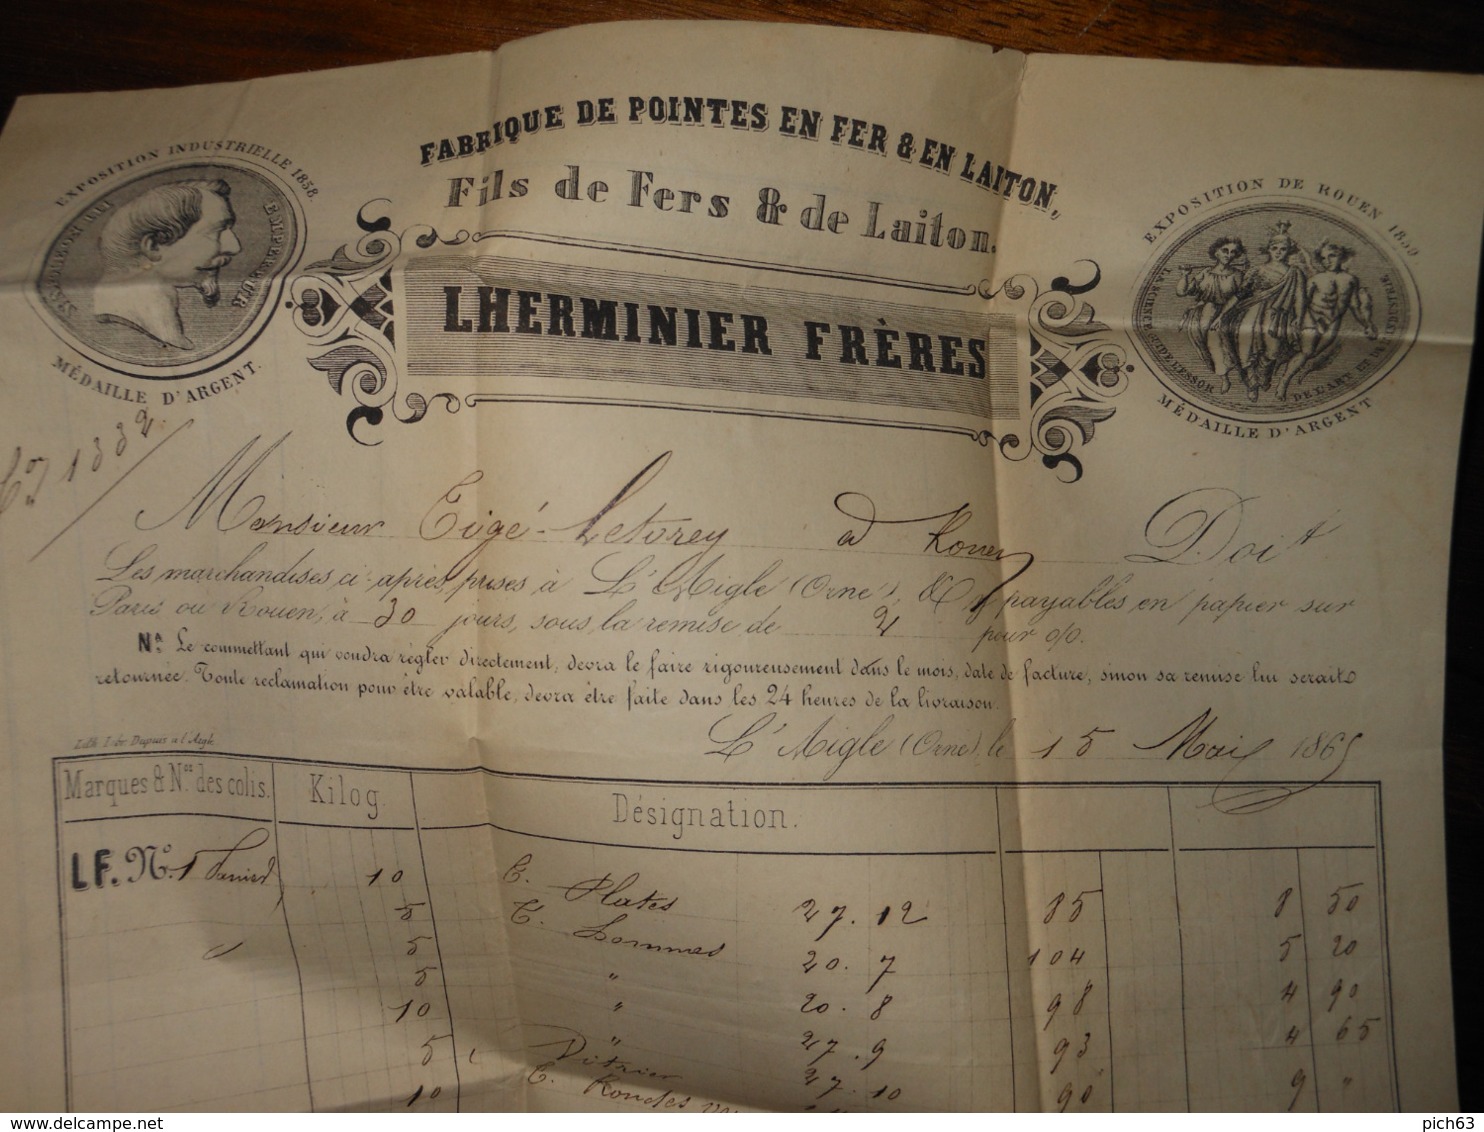 FABRIQUE DE POINTES EN FER & EN LAITON,
Fils de Fers & de Laiton.
LHERMINIER FRÈRES
EXPOSITION INDUSTRIELLE 1858.
EMPEREUR
MÉDAILLE D'ARGENT.
EXPOSITION DE ROUEN 1859
MÉDAILLE D'ARGENT
1332
Monsieur Letorey à Rouen Doit
Les marchandises ci-après, prises à L'Aigle (Orne), & payables en papier sur
Paris ou Rouen, à 30 jours, sous la remise de 2 pour 0/0.
Nª. Le commettant qui voudra régler directement, devra le faire rigoureusement dans le mois, date de facture, sinon sa remise lui serait
retournée. Toute reclamation pour être valable, devra être faite dans les 24 heures de la livraison.
L'Aigle (Orne), le 15 Mai 1865
Lith. Libr. Dupuis à l'Aigle
Marques & Nos des colis. Kilog. Désignation.
LF. No. 1 10 T. Plates 27. 12 85 8 50
5 T. hommes 20. 7 104 5 20
5 " 20. 8 98 4 90
5 " 27. 9 93 4 65
10 27. 10 90 9 "
5
10 T. Rondes
pich63